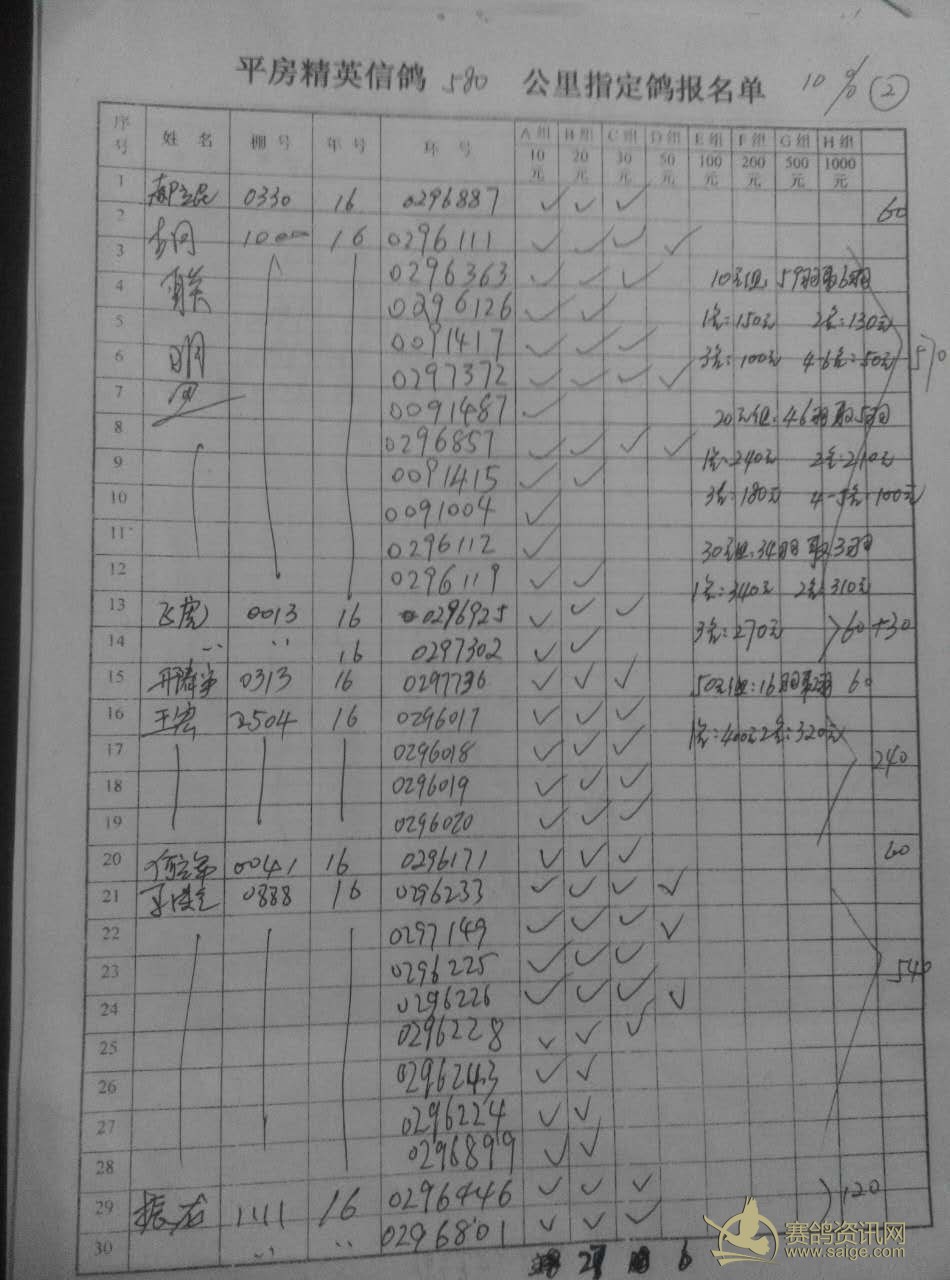 平房精英信鸽 580 公里指定鸽报名单 10% ②
序号 姓名 棚号 年号 环号 A组 B组 C组 D组 E组 F组 G组 H组
10元 20元 30元 50元 100元 200元 500元 1000元
1 0330 16 0296887 ✓ ✓ ✓ 60
2 1000 16 0296111 ✓ ✓ ✓ ✓
3 0296363 ✓ ✓ ✓ 10元组:59羽取6羽
4 0296126 ✓ ✓ 1名:150元 2名:130元
5 0091417 ✓ ✓ ✓ 3名:100元 4-6名:50元 570
6 明 0297372 ✓ ✓ ✓ ✓
7 0091487 ✓ 20元组:46羽取5羽
8 0296857 ✓ ✓ ✓ ✓ 1名:240元 2名:210元
9 0091415 ✓ ✓ 3名:180元 4-5名:100元
10 0091004 ✓
11 0296112 ✓ 30元组:34羽取3羽
12 0296119 ✓ ✓ 1名:340元 2名:310元
13 飞虎 0013 16 0296925 ✓ ✓ ✓ 3名:270元 60+30
14 〃 〃 16 0297302 ✓ ✓
15 0313 16 0297736 ✓ ✓ ✓ 50元组:16羽取2羽 60
16 王宏 2504 16 0296017 ✓ ✓ ✓ 1名:400元 2名:320元
17 0296018 ✓ ✓ ✓ 240
18 0296019 ✓ ✓ ✓
19 0296020 ✓ ✓ ✓
20 0041 16 0296171 ✓ ✓ ✓ 60
21 0888 16 0296233 ✓ ✓ ✓ ✓
22 0297149 ✓ ✓ ✓ ✓
23 0296225 ✓ ✓ ✓ 540
24 0296226 ✓ ✓ ✓ ✓
25 0296228 ✓ ✓ ✓
26 0296243 ✓ ✓
27 0296224 ✓ ✓
28 0296899 ✓ ✓
29 振龙 1111 16 0296446 ✓ ✓ ✓ 120
30 〃 〃 0296801 ✓ ✓ ✓
6
赛鸽资讯网
www.saige.com